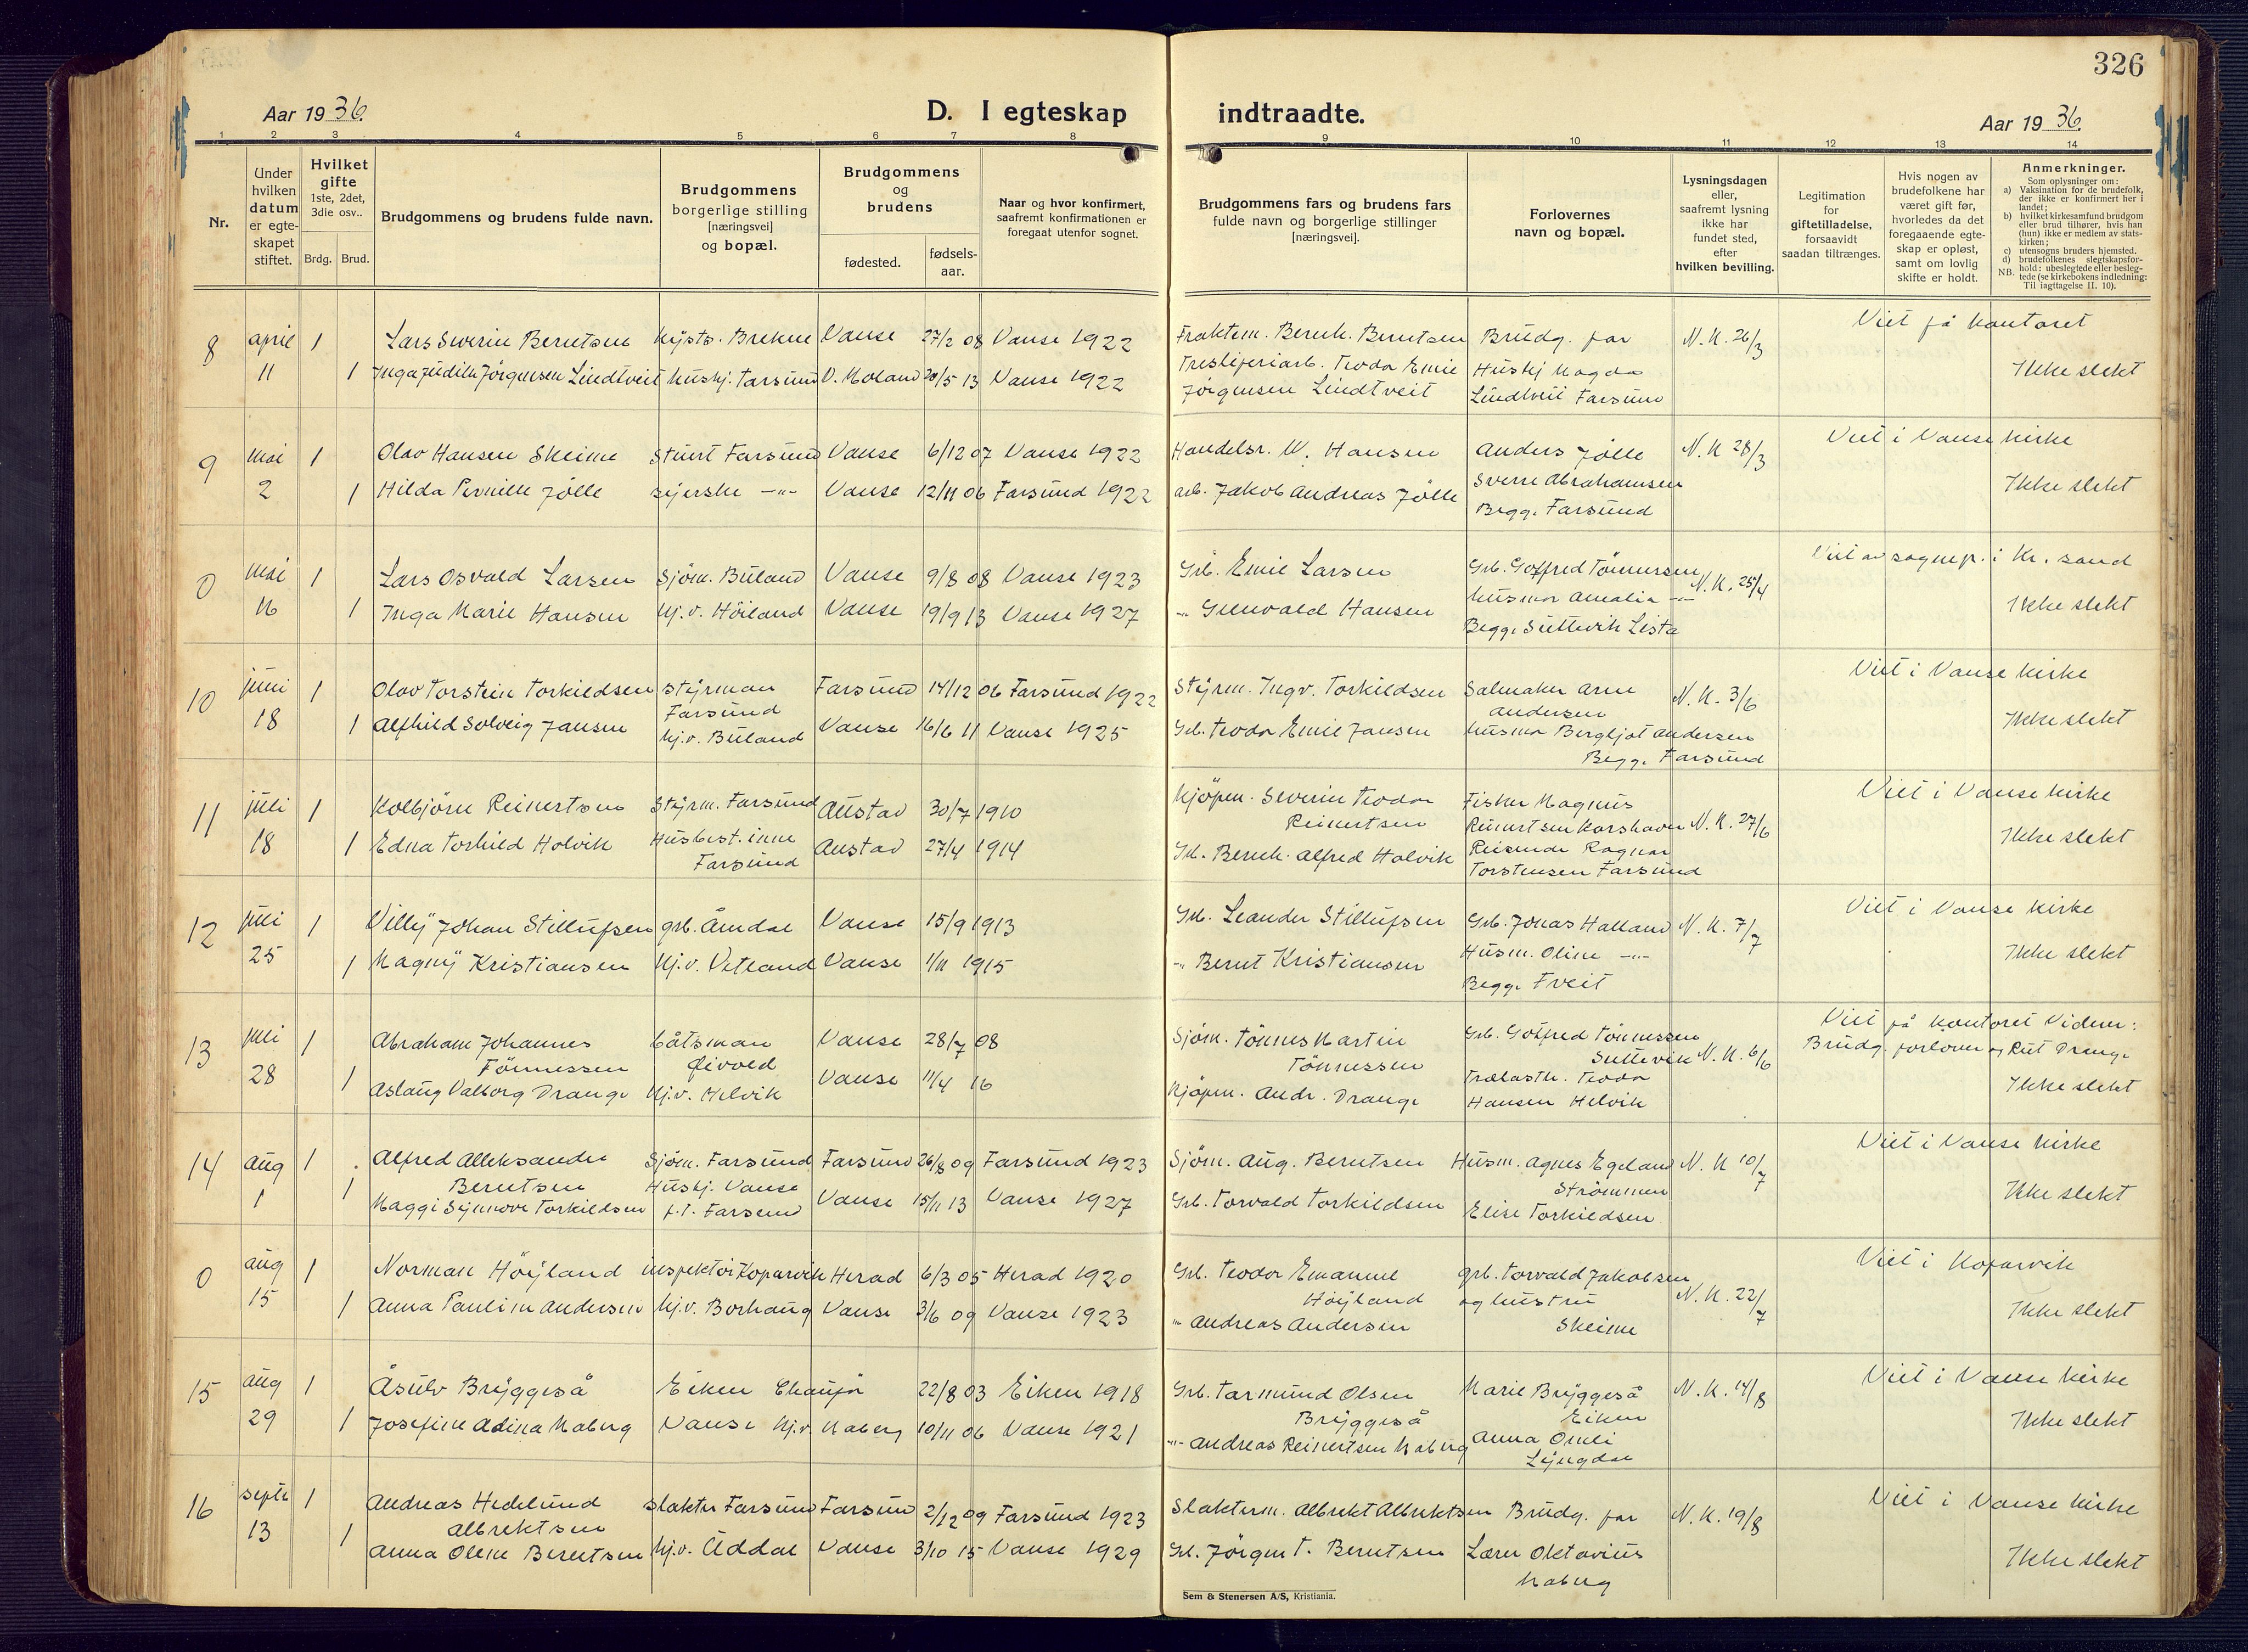 326
Aar 19 36.
D. I egteskap indtraadte.
Aar 19 36.
1 2 3 4 5 6 7 8 9 10 11 12 13 14
Nr.
Under hvilken datum er egteskapet stiftet.
Hvilket gifte 1ste, 2det, 3die osv..
Brdg. Brud.
Brudgommens og brudens fulde navn.
Brudgommens borgerlige stilling [næringsvei] og bopæl.
Brudgommens og brudens
fødested.
fødsels-aar.
Naar og hvor konfirmert, saafremt konfirmationen er foregaat utenfor sognet.
Brudgommens fars og brudens fars fulde navn og borgerlige stillinger [næringsvei].
Forlovernes navn og bopæl.
Lysningsdagen eller, saafremt lysning ikke har fundet sted, efter hvilken bevilling.
Legitimation for giftetilladelse, forsaavidt saadan tiltrænges.
Hvis nogen av brudefolkene har været gift før, hvorledes da det foregaaende egteskap er opløst, samt om lovlig skifte er holdt.
Anmerkninger.
Som oplysninger om:
a) Vaksination for de brudefolk, der ikke er konfirmert her i landet;
b) hvilket kirkesamfund brudgom eller brud tilhører, hvis han (hun) ikke er medlem av statskirken;
c) utensogns bruders hjemsted.
d) brudefolkenes slegtskapsforhold: ubeslegtede eller beslegtede (se kirkebokens indledning:
NB. Til iagttagelse II. 10).
8 april 1 Lars Severin Berntsen Kysts. Brekne Vanse 27/2 08 Vanse 1922 Fraktem. Bernh. Berntsen Brudg. far N.K. 26/3 Viet på kontoret
11 1 Inga Judith Jørgensen Lindtveit hushj. Farsund V. Moland 20/5 13 Vanse 1922 Treskjeriarb. Teodor Emil Hushj Magda Ikke slekt
Jørgensen Lindtveit Lindtveit Farsund
9 mai 1 Olav Hansen Skeime Stuert Farsund Vanse 6/12 07 Vanse 1922 Handelsr. W. Hansen Anders Jølle N.K 28/3 Viet i Vanse kirke
2 1 Hilda Pernille Jølle syerske -"- Vanse 12/11 06 Farsund 1922 arb. Jakob Andreas Jølle Sverre Abrahamsen Ikke slekt
Begge Farsund
0 mai 1 Lars Osvald Larsen Sjøm. Buland Vanse 9/8 08 Vanse 1923 Grb. Emil Larsen Grb. Gotfred Tönnessen N.K. 25/4 Viet av sognepr. i Kr. sand
16 1 Inga Marie Hansen hj.v. Høiland Vanse 19/9 13 Vanse 1927 -"- Grunvald Hansen husmor Amalia -"- Ikke slekt
Begge Sellevik Lista
10 juni 1 Olav Torstein Torkildsen styrman Farsund 14/12 06 Farsund 1922 Styrm. Ingv. Torkildsen Salmaker Arne N.K. 3/6 Viet i Vanse kirke
Farsund Andersen
18 1 Alfhild Solveig Jansen hj.v. Buland Vanse 16/6 11 Vanse 1925 Grb. Teodor Emil Jansen husmor Bergljot Andersen Ikke slekt
Begge Farsund
11 juli 1 Kolbjørn Reinertsen Styrm. Farsund Austad 30/7 1910 Kjøpm. Severin Teodor Fisker Magnus Viet i Vanse kirke
Reinertsen Reinertsen Korshavn N.K. 27/6
18 1 Edna Torhild Holvik Husbest.inne Austad 27/4 1914 Grb. Bernh. Alfred Holvik Reisende Ragnar Ikke slekt
Farsund Torstensen Farsund
12 juli 1 Villy Johan Stillufsen grb. Åmdal Vanse 15/9 1913 Grb. Leander Stillufsen Grb. Jonas Halland N.K. 7/7 Viet i Vanse kirke
25 1 Magny Kristiansen hj.v. Vetland Vanse 1/11 1915 -"- Bernt Kristiansen Husm. Oline -"- Ikke slekt
Begge Tveit
13 juli 1 Abraham Johannes båtsman Vanse 28/7 08 Sjøm. Tönnes Martin Grb. Gotfred Tönnessen Viet på kontoret Vidner:
Tönnessen Øivold Tönnessen Sellevik N.K. 6/6 Brudg. forlover og Rut Drange
28 1 Aslaug Valborg Drange hj.v. Helvik Vanse 11/4 16 Kjøpm. Andr. Drange Trelasth. Teodor Ikke slekt
Hansen Helvik
14 aug 1 Alfred Alleksander Sjøm. Farsund Farsund 26/8 09 Farsund 1923 Sjøm. Aug. Berntsen Husm. Agnes Egeland N.K 10/7 Viet i Vanse kirke
Berntsen Hushj. Vanse Strömmen
1 1 Maggi Synnøve Torkildsen f.t. Farsund Vanse 15/11 13 Vanse 1927 Grb. Torvald Torkildsen Elise Torkildsen Ikke slekt
0 aug 1 Norman Höyland inspektør Koparvik Herad 6/3 05 Herad 1920 Grb. Teodor Emanuel grb. Torvald Jakobsen Viet i Koparvik
Höyland og hustru N.K. 22/7
15 1 Anna Pauline Andersen hj.v. Borhaug Vanse 3/6 09 Vanse 1923 -"- Andreas Andersen Skeime Ikke slekt
15 aug 1 Åsulv Bryggeså Eiken Chaufør 22/8 03 Eiken 1918 Grb. Tarmund Olsen Marie Bryggeså N.K. 14/8 Viet i Vanse kirke
Bryggeså Eiken
29 1 Josefine Adina Maberg Vanse hj.v. Maberg 10/11 06 Vanse 1921 -"- Andreas Reinertsen Maberg Anna Omli Ikke slekt
Lyngdal
16 septe 1 Andreas Hedelund slakter Farsund Farsund 2/12 09 Farsund 1923 Slakterm. Albrekt Albrektsen Brudg. far N.K. 19/8 Viet i Vanse kirke
Albrektsen
13 1 Anna Oline Berntsen hj.v. Åddal Vanse 3/10 15 Vanse 1929 Grb. Jörgen T. Berntsen Lærer Oktavius Ikke slekt
Maberg
Sem & Stenersen A/S, Kristiania.